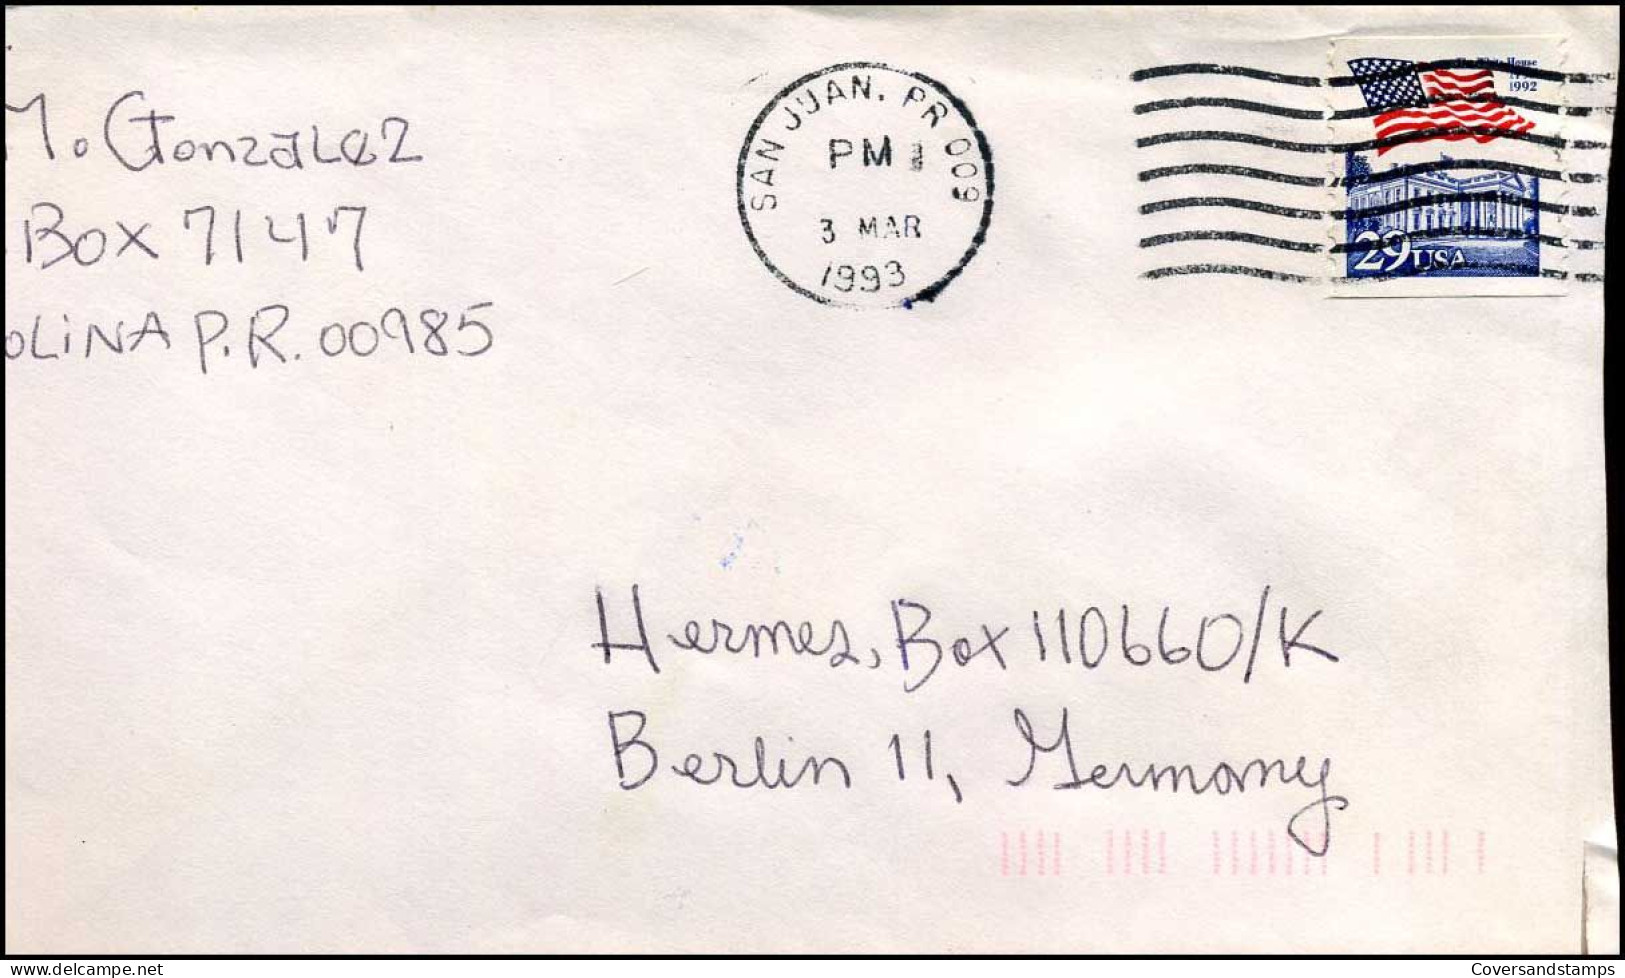 M. Gonzalez
Box 7147
OLINA P.R. 00985
SAN JUAN, PR 009
PM
3 MAR
1993
House
1992
29 USA
Hermes, Box 110660/K
Berlin 11, Germany
© Coversandstamps
Coversandstamps